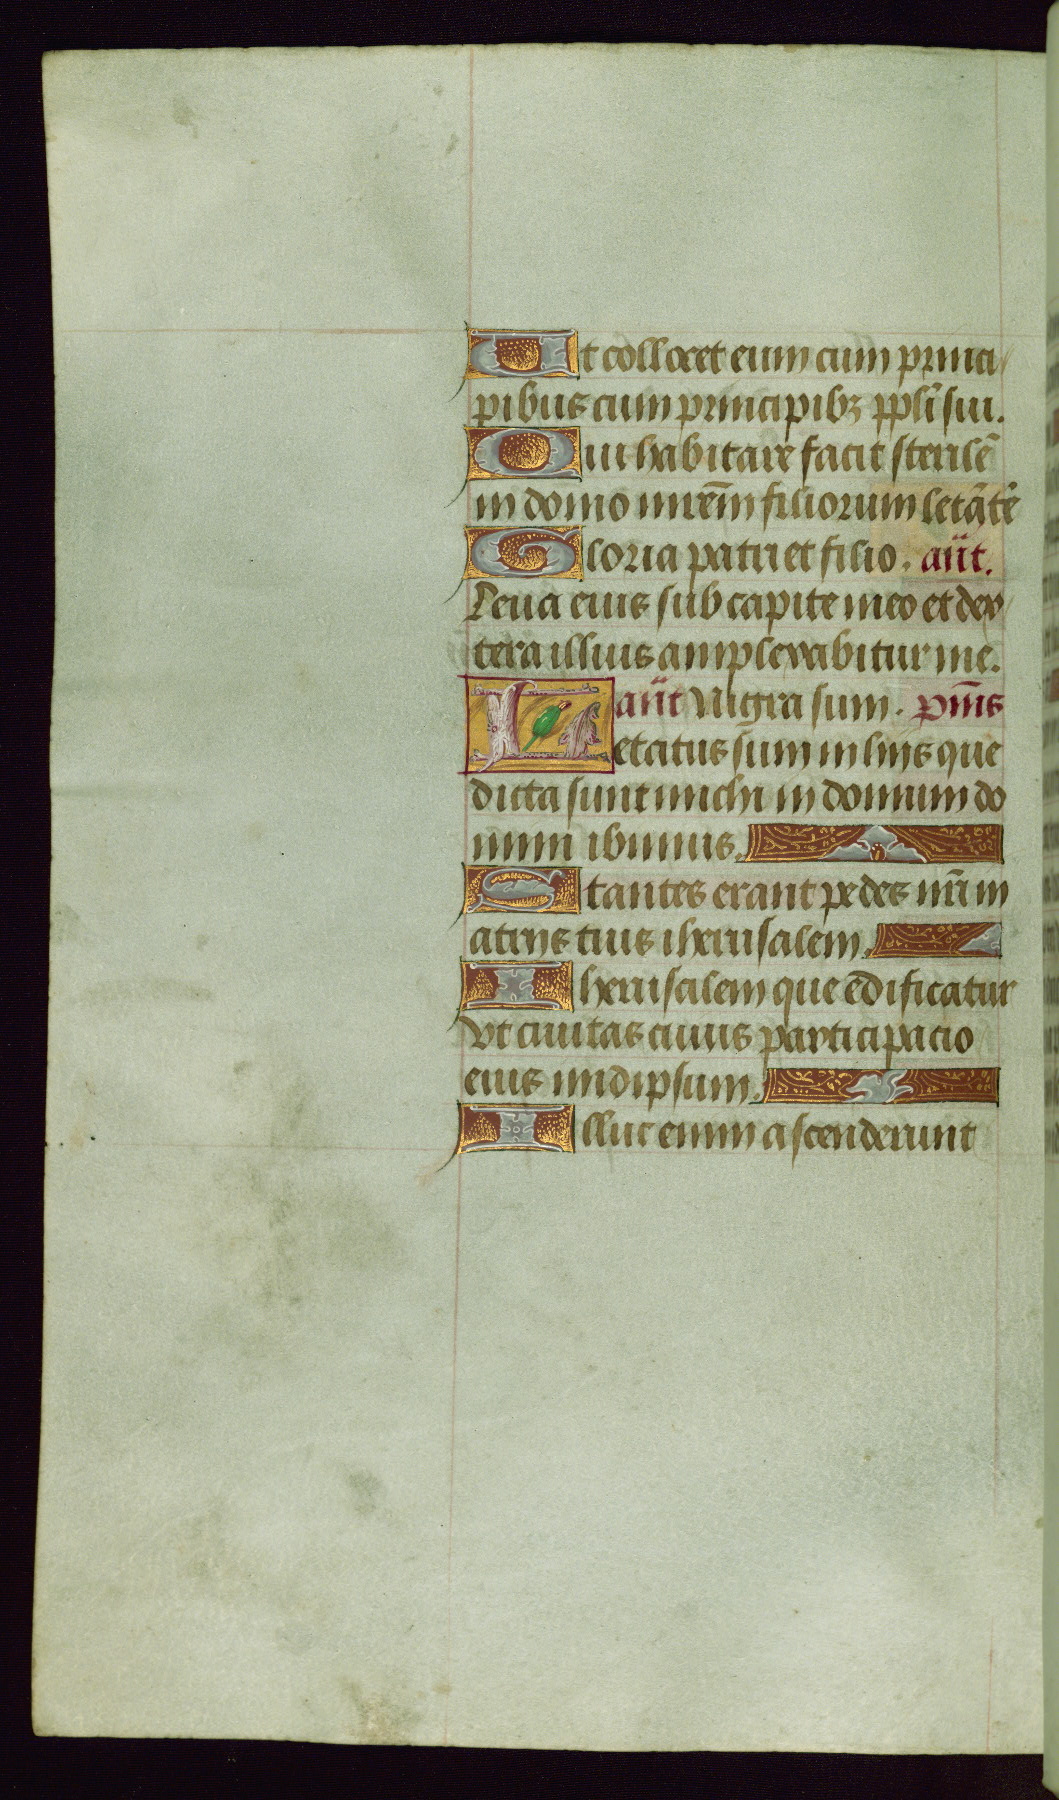 Ut collocet eum cum princi
pibus cum principibꝫ ppl̄i sui.
Qui habitare facit sterilē
in domo mrēm filiorum letātē
Gloria patri et filio. añt.
Leua eius sub capite meo et dex
tera illius amplexabitur me.
añt Nigra sum. p̄ms
Letatus sum in hijs que
dicta sunt michi in domum do
mini ibimus.
Stantes erant pedes nr̄i in
atrijs tuis iherusalem.
Iherusalem que edificatur
vt ciuitas cuius participacio
eius in idipsum.
Illuc enim ascenderunt